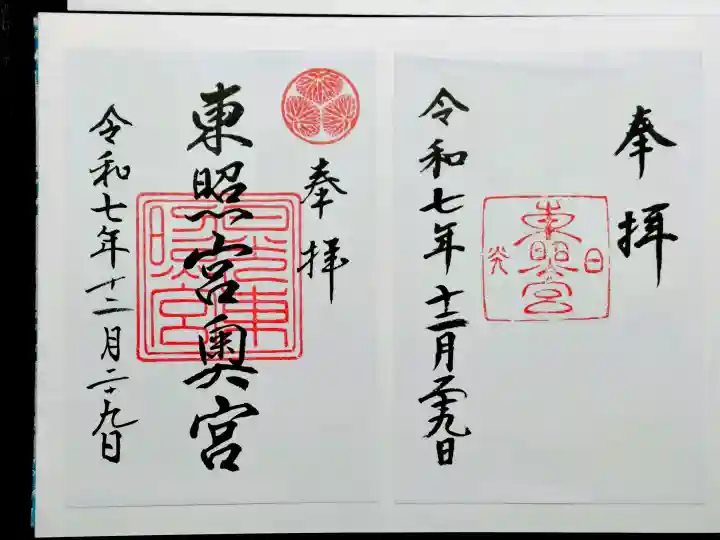 奉拝
日光
東照宮
令和七年十二月二十九日
奉拝
東照宮奥宮
日光東照宮
令和七年十二月二十九日